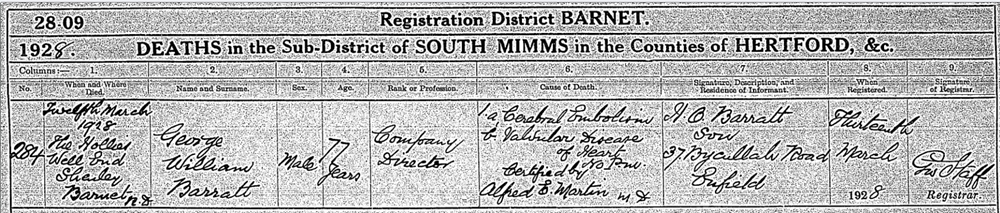 28.09
Registration District BARNET.
1928. DEATHS in the Sub-District of SOUTH MIMMS in the Counties of HERTFORD, &c.
Columns :— 1. 2. 3. 4. 5. 6. 7. 8. 9.
No. When and Where Died. Name and Surname. Sex. Age. Rank or Profession. Cause of Death. Signature, Description, and Residence of Informant. When Registered. Signature of Registrar.
284
Twelfth March
1928
The Hollies
Well End
Shenley
Barnet R.D.
George
William
Barratt
Male
77
years
Company
Director
1.a Cerebral Embolism
b. Valvular Disease
of Heart
No P.M.
Certified by
Alfred E. Martin M.D.
H. O. Barratt
Son
37 Bycullah Road
Enfield
Thirteenth
March
1928
Staff
Registrar.